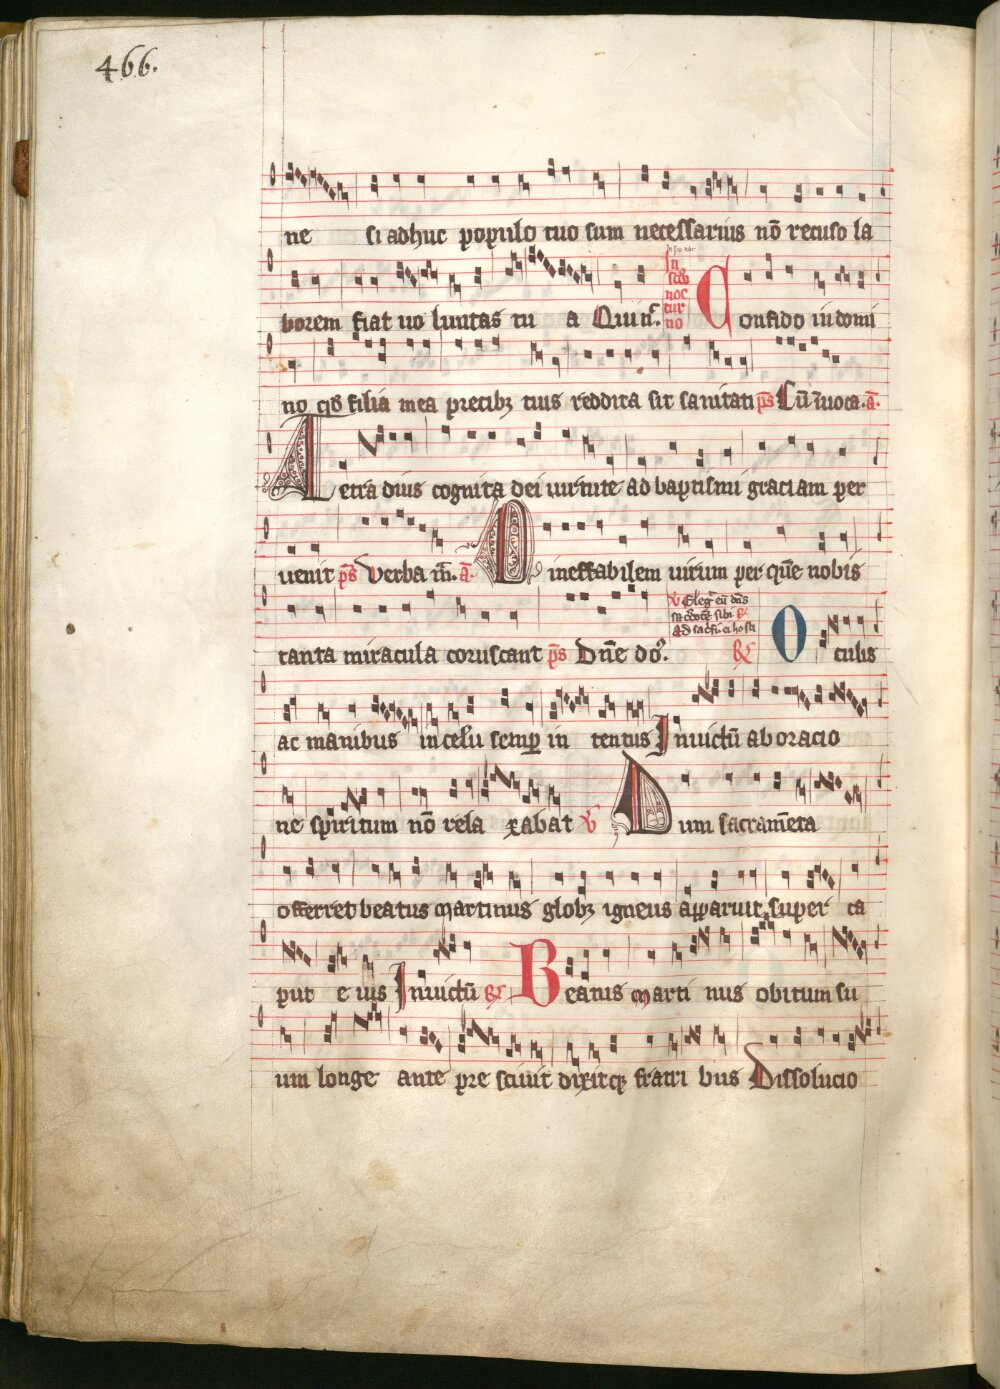 466.
ne si adhuc populo tuo sum necessarius nō recuso la
borem fiat uo luntas tu a Quin̄.
In scd̄o noc tur no
Confido in domi
no qd̄ filia mea precibꝫ tuis reddita sit sanitati p̄s Cū īuoca. ā.
Tetradius cognita dei uirtute ad baptismi graciam per
uenit p̄s Verba m̄. ā. O ineffabilem uirum per quē nobis
tanta miracula coruscant p̄s Dn̄e do.
℣ Elegͥ eū dn̄s
℟ Oculis
ac manibus in celū semꝑ in tentus Inuictū ab oracio
ne spiritum nō rela xabat ℣ Dum sacramēta
offerret beatus martinus globꝫ igneus apparuit super ca
put e ius Inuictū ℟ Beatus marti nus obitum su
um longe ante pre sciuit dixitqꝫ fratri bus Dissolucio